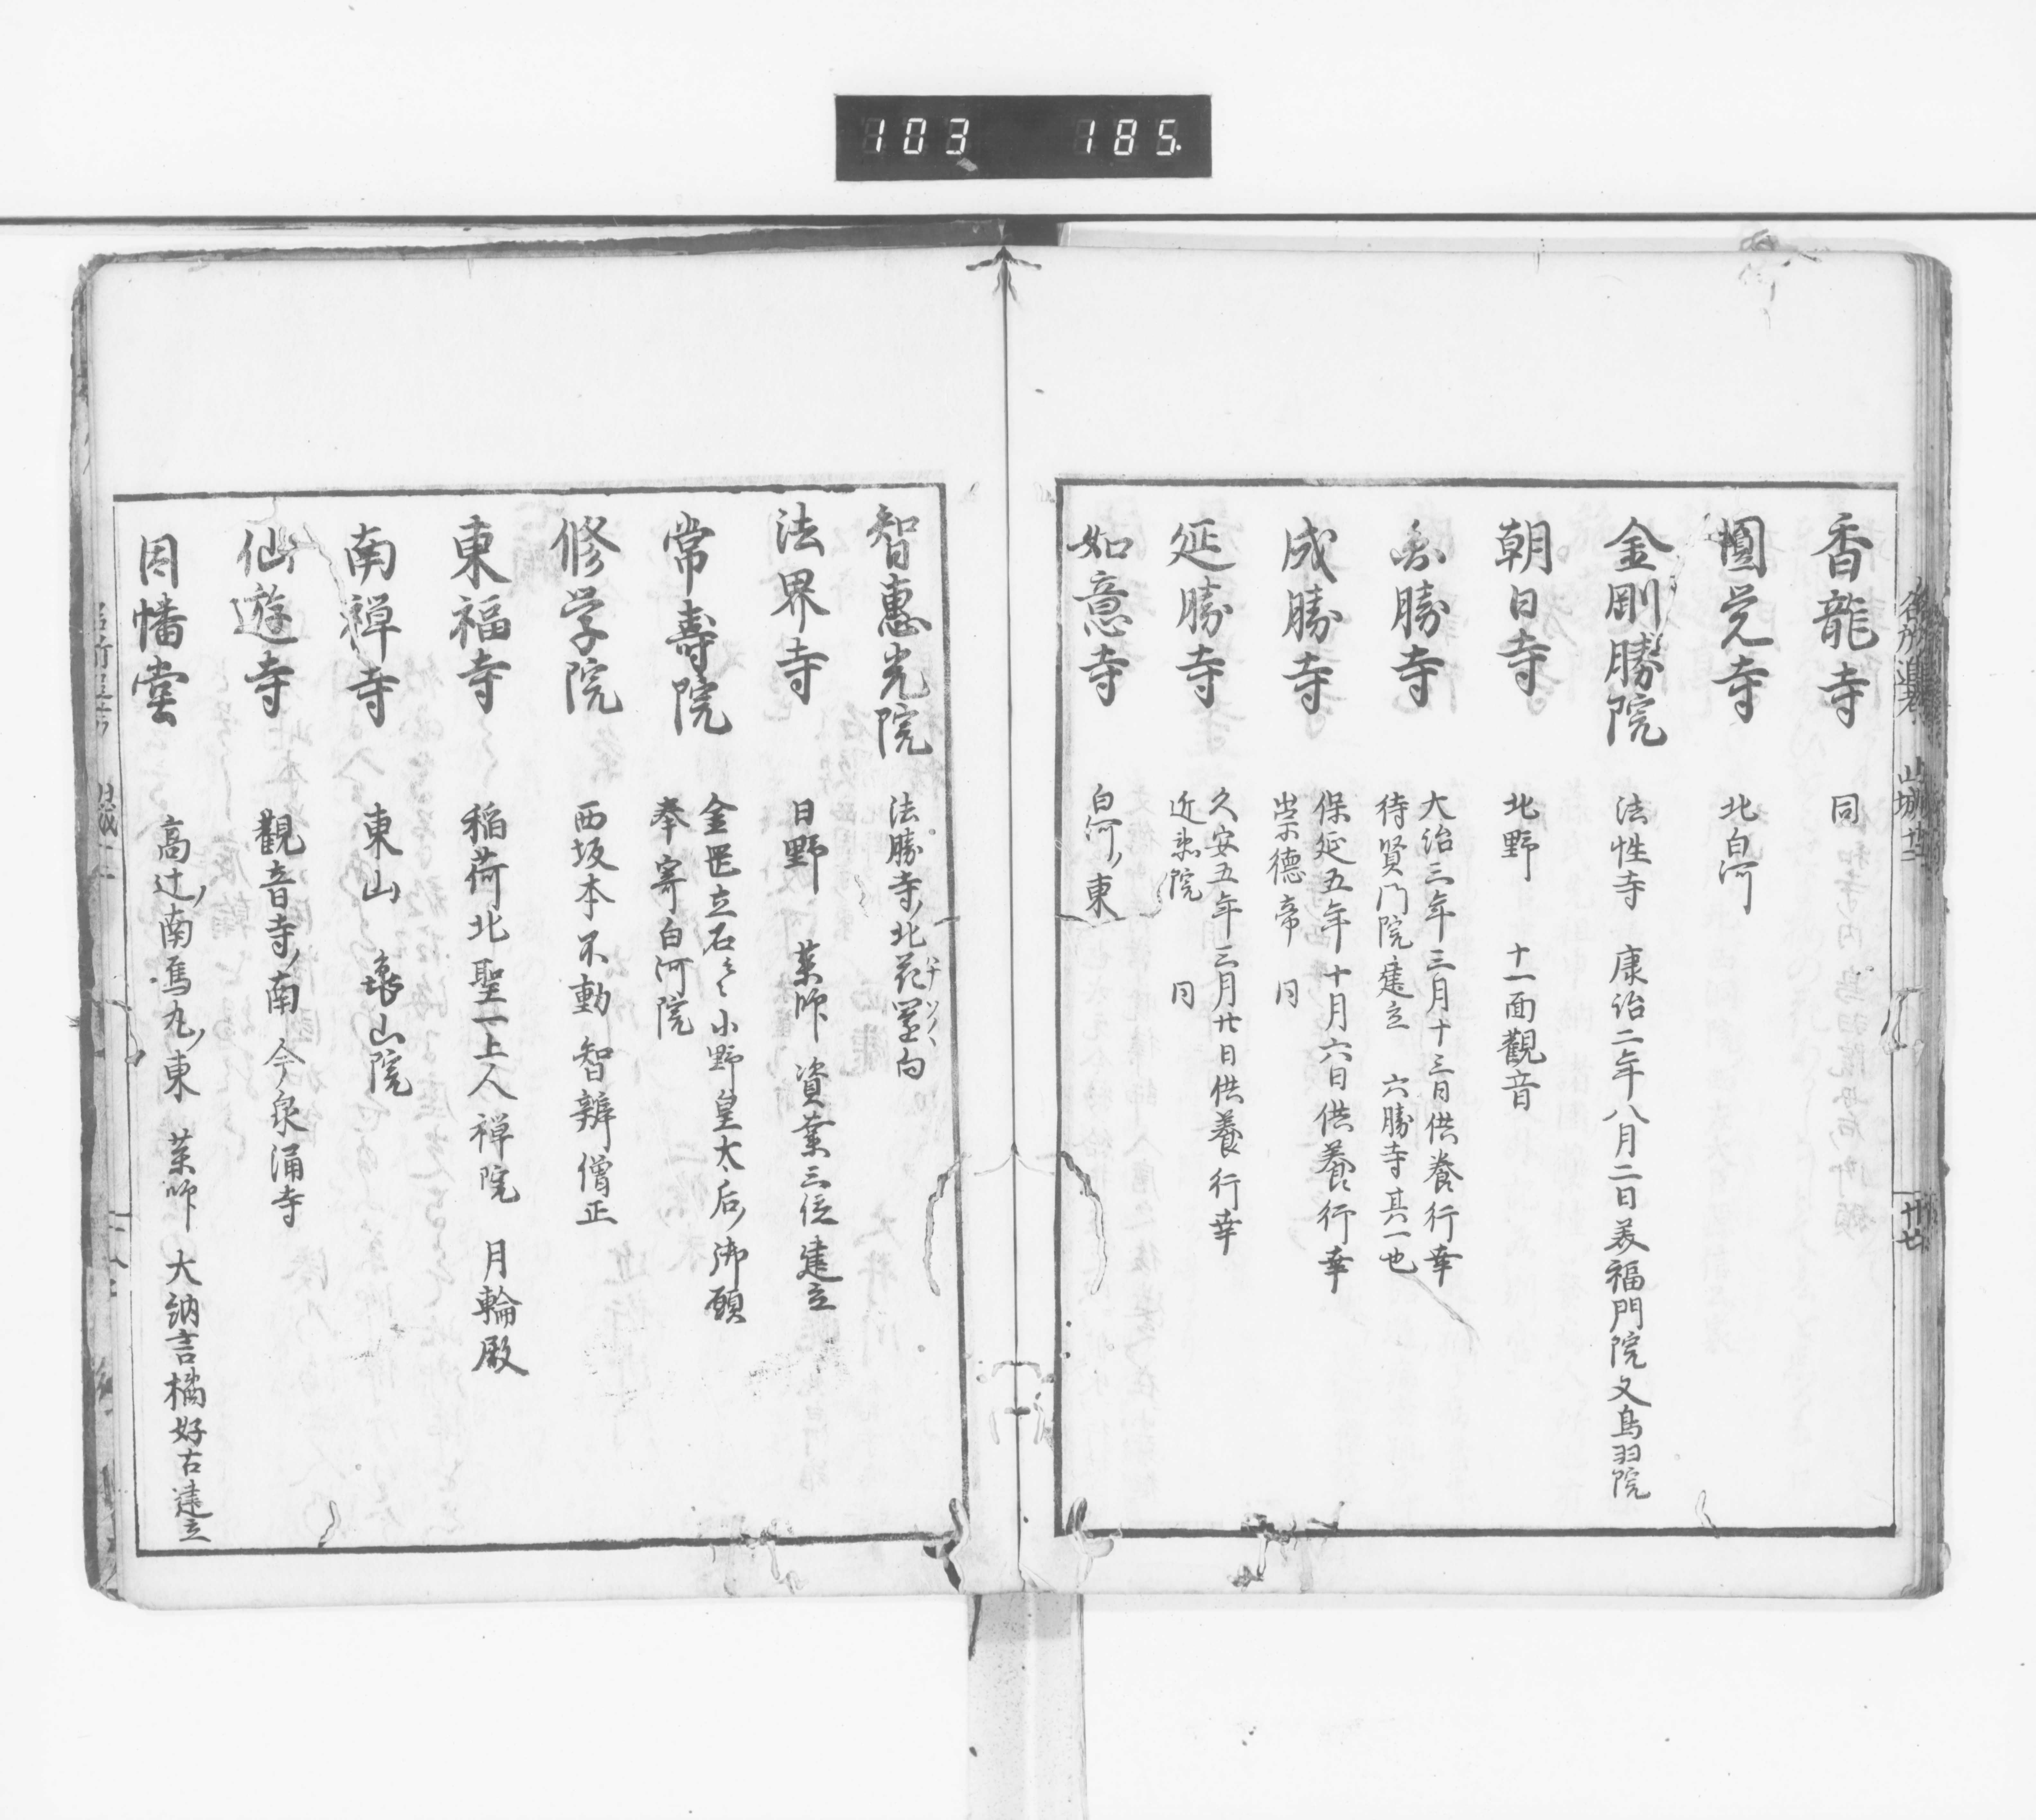 103 185
香龍寺 同
圓覚寺 北白河
金剛勝院 法性寺 康治二年八月二日美福門院又鳥羽院
朝日寺 北野 十一面觀音
勝寺 大治三年三月十三日供養行幸
待賢門院建立 六勝寺其一也
成勝寺 保延五年十月六日供養行幸
崇徳帝 同
延勝寺 久安五年三月廿日供養行幸
近衛院 同
如意寺 白河ノ東
智惠光院 法勝寺ノ北花園向
法界寺 日野 薬師 資業三位建立
常壽院 金
立石々々小野皇太后ノ御願
奉寄白河院
修学院 西坂本不動 智辨僧正
東福寺 稲荷北聖一上人禅院 月輪殿
南禅寺 東山 亀山院
仙遊寺 觀音寺ノ南 今泉涌寺
因幡堂 高辻ノ南烏丸ノ東 薬師 大納言橘好古建立
名所追考 山城